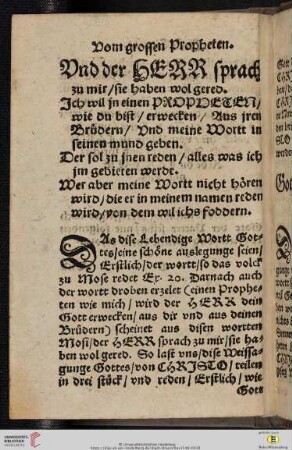 Vom grossen Propheten.
Vnd der HERR sprach
zu mir/sie haben wol gered.
Ich wil jn einen PROPHETEN/
wie du bist/erwecken/Aus jren
Brüdern/Vnd meine Wortt in
seinen mund geben.
Der sol zu jnen reden/alles was ich
jm gebieten werde.
Wer aber meine Wortt nicht hören
wird/die er in meinem namen reden
wird/von dem wil ichs foddern.
DAs dise Lebendige Wortt Got-
tes/eine schöne auslegunge seien/
Erstlich/der wortt/so das volck
zu Mose redet Ex. 20. Darnach auch
der wortt droben erzelet (einen Prophe-
ten wie mich/wird der HERR dein
Gott erwecken/aus dir vnd aus deinen
Brüdern) scheinet aus disen wortten
Mosi/der HERR sprach zu mir/sie ha-
ben wol gered. So last vns/dise Weissa-
gunge Gottes/von CHRISTO/teilen
in drei stück/vnd reden/Erstlich/wie
Gott